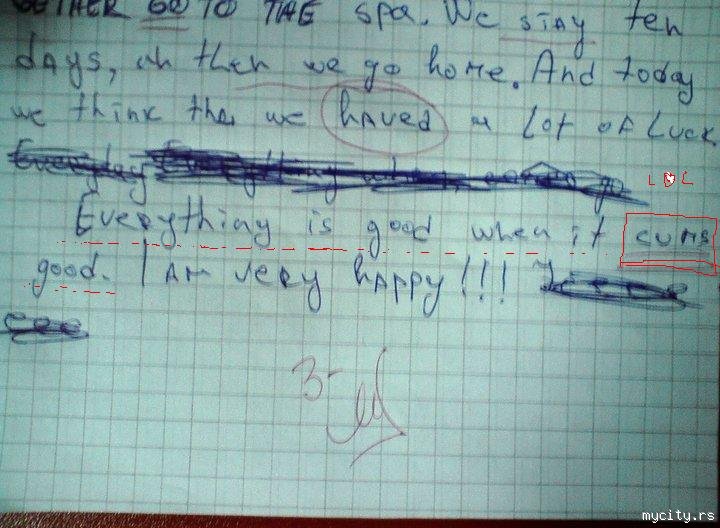 GETHER GO TO THE spa. We stay ten
days, an then we go home. And today
we think tha we haved a lot of luck.
Everyday Everything when
LOL
Everything is good when it cums
good. I am very happy!!!
3-
mycity.rs